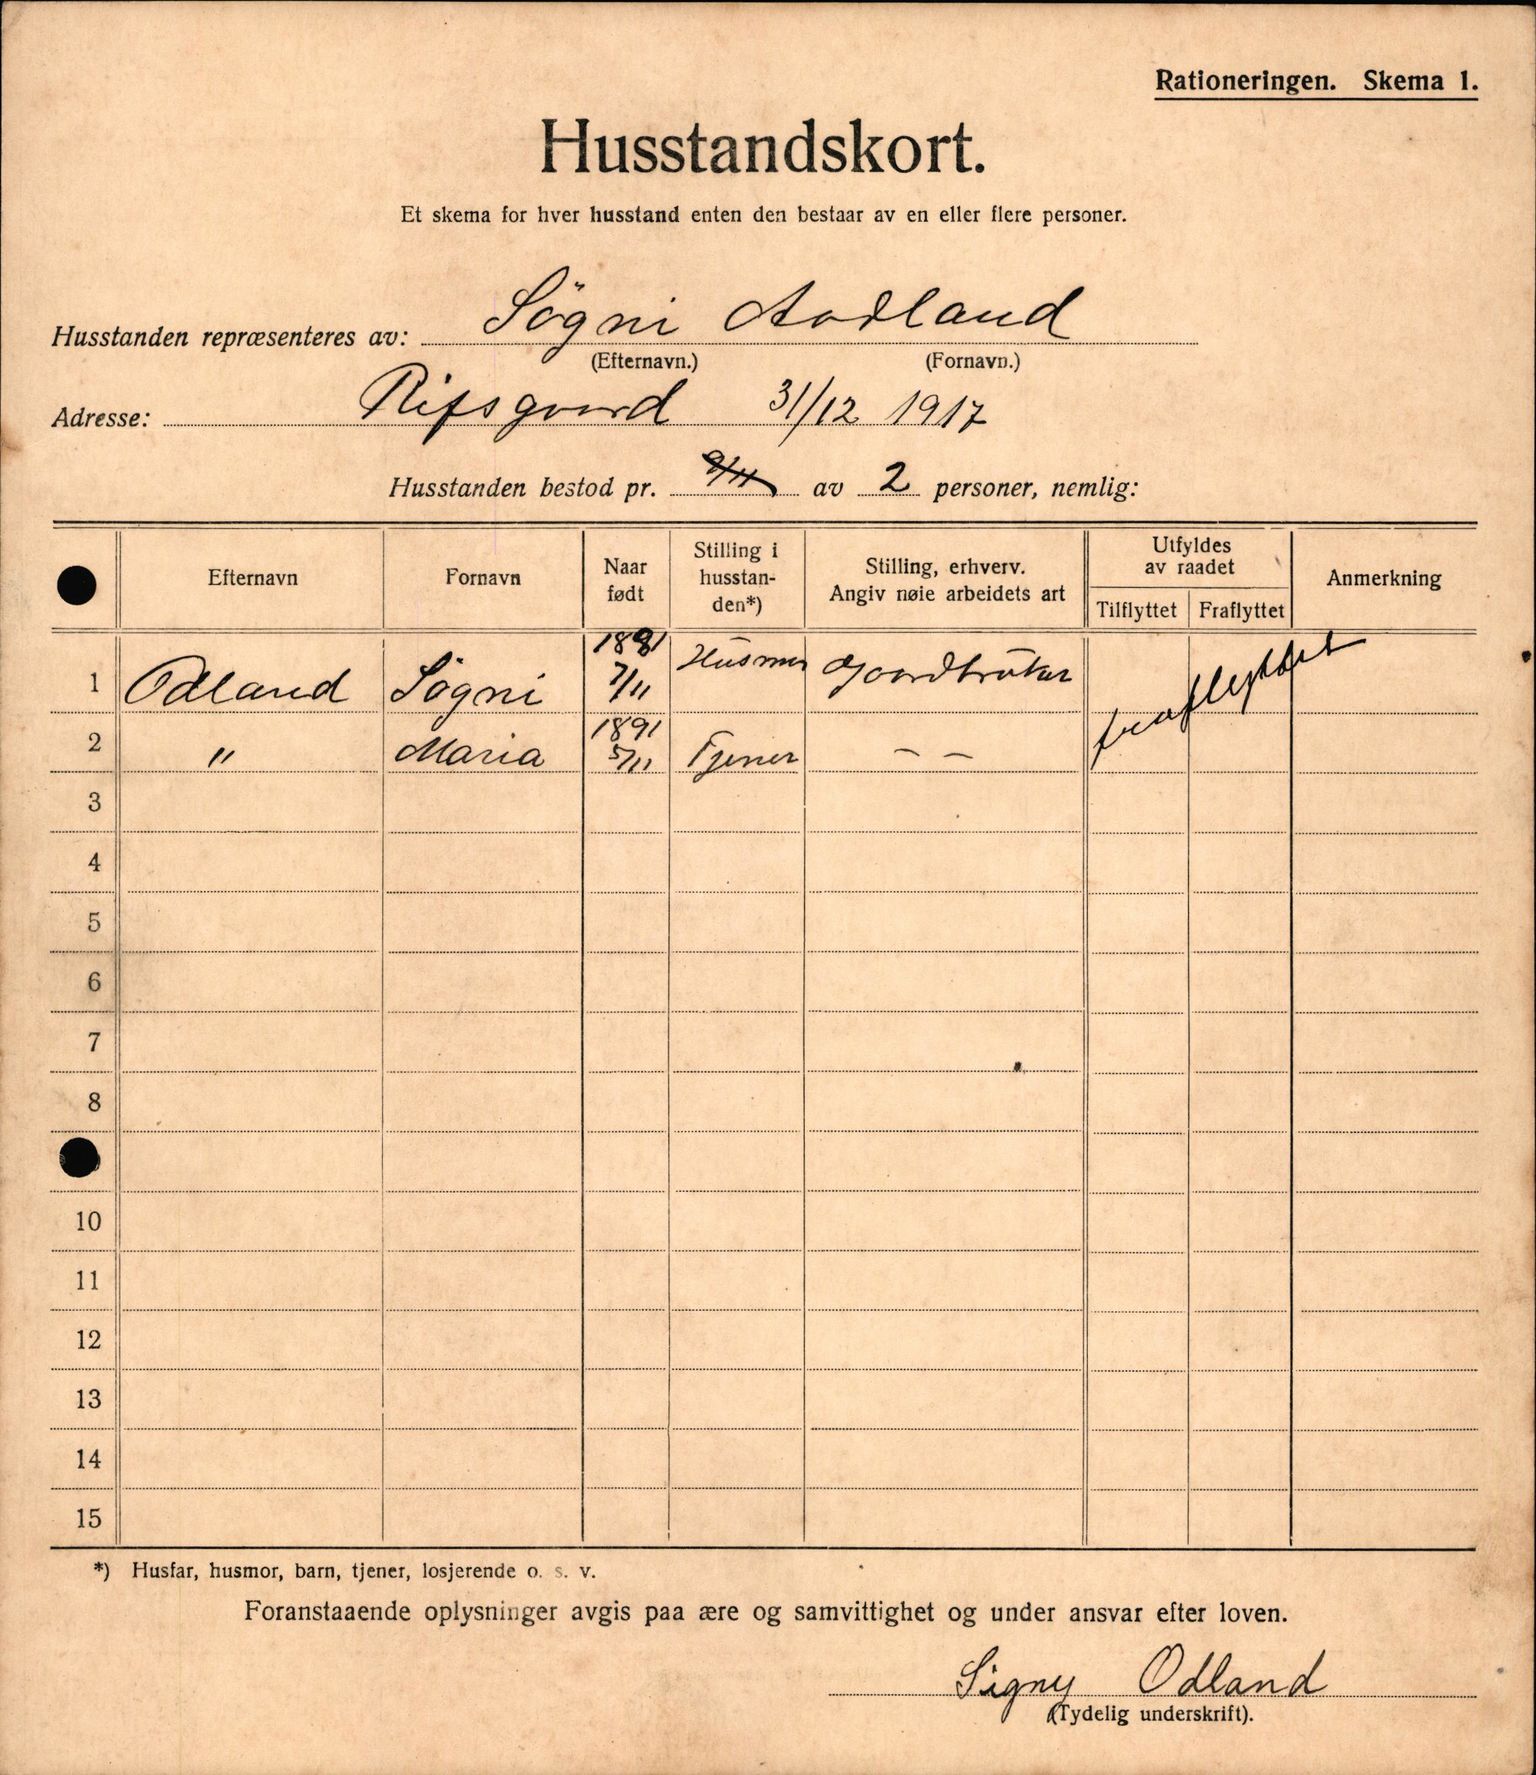 Rationeringen. Skema 1.
Husstandskort.
Et skema for hver husstand enten den bestaar av en eller flere personer.
Husstanden repræsenteres av: Sögni Aadland
(Efternavn.) (Fornavn.)
Adresse: Rifsgaard 31/12 1917
Husstanden bestod pr. 9/11 av 2 personer, nemlig:
Efternavn Fornavn Naar født Stilling i husstan-den*) Stilling, erhverv. Angiv nøie arbeidets art Utfyldes av raadet Tilflyttet Fraflyttet Anmerkning
1 Odland Sögni 1881 7/11 Husmor Gaardbruker fraflyttet
2 " Maria 1891 5/11 Tjener — —
3
4
5
6
7
8
10
11
12
13
14
15
*) Husfar, husmor, barn, tjener, losjerende o. s. v.
Foranstaaende oplysninger avgis paa ære og samvittighet og under ansvar efter loven.
Signy Odland
(Tydelig underskrift).